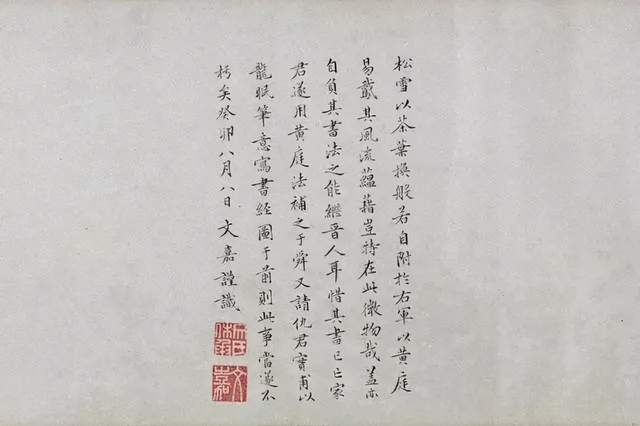 松雪以茶葉換般若自附於右軍以黃庭
易鵞其風流蘊藉豈特在此微物哉蓋亦
自負其書法之能繼晉人耳惜其書已亡家
君遂用黃庭法補之于舜又請仇君實甫以
龍眠筆意寫書經圖于前則此事當遂不
朽矣癸卯八月八日文嘉謹識
文氏休承
文嘉